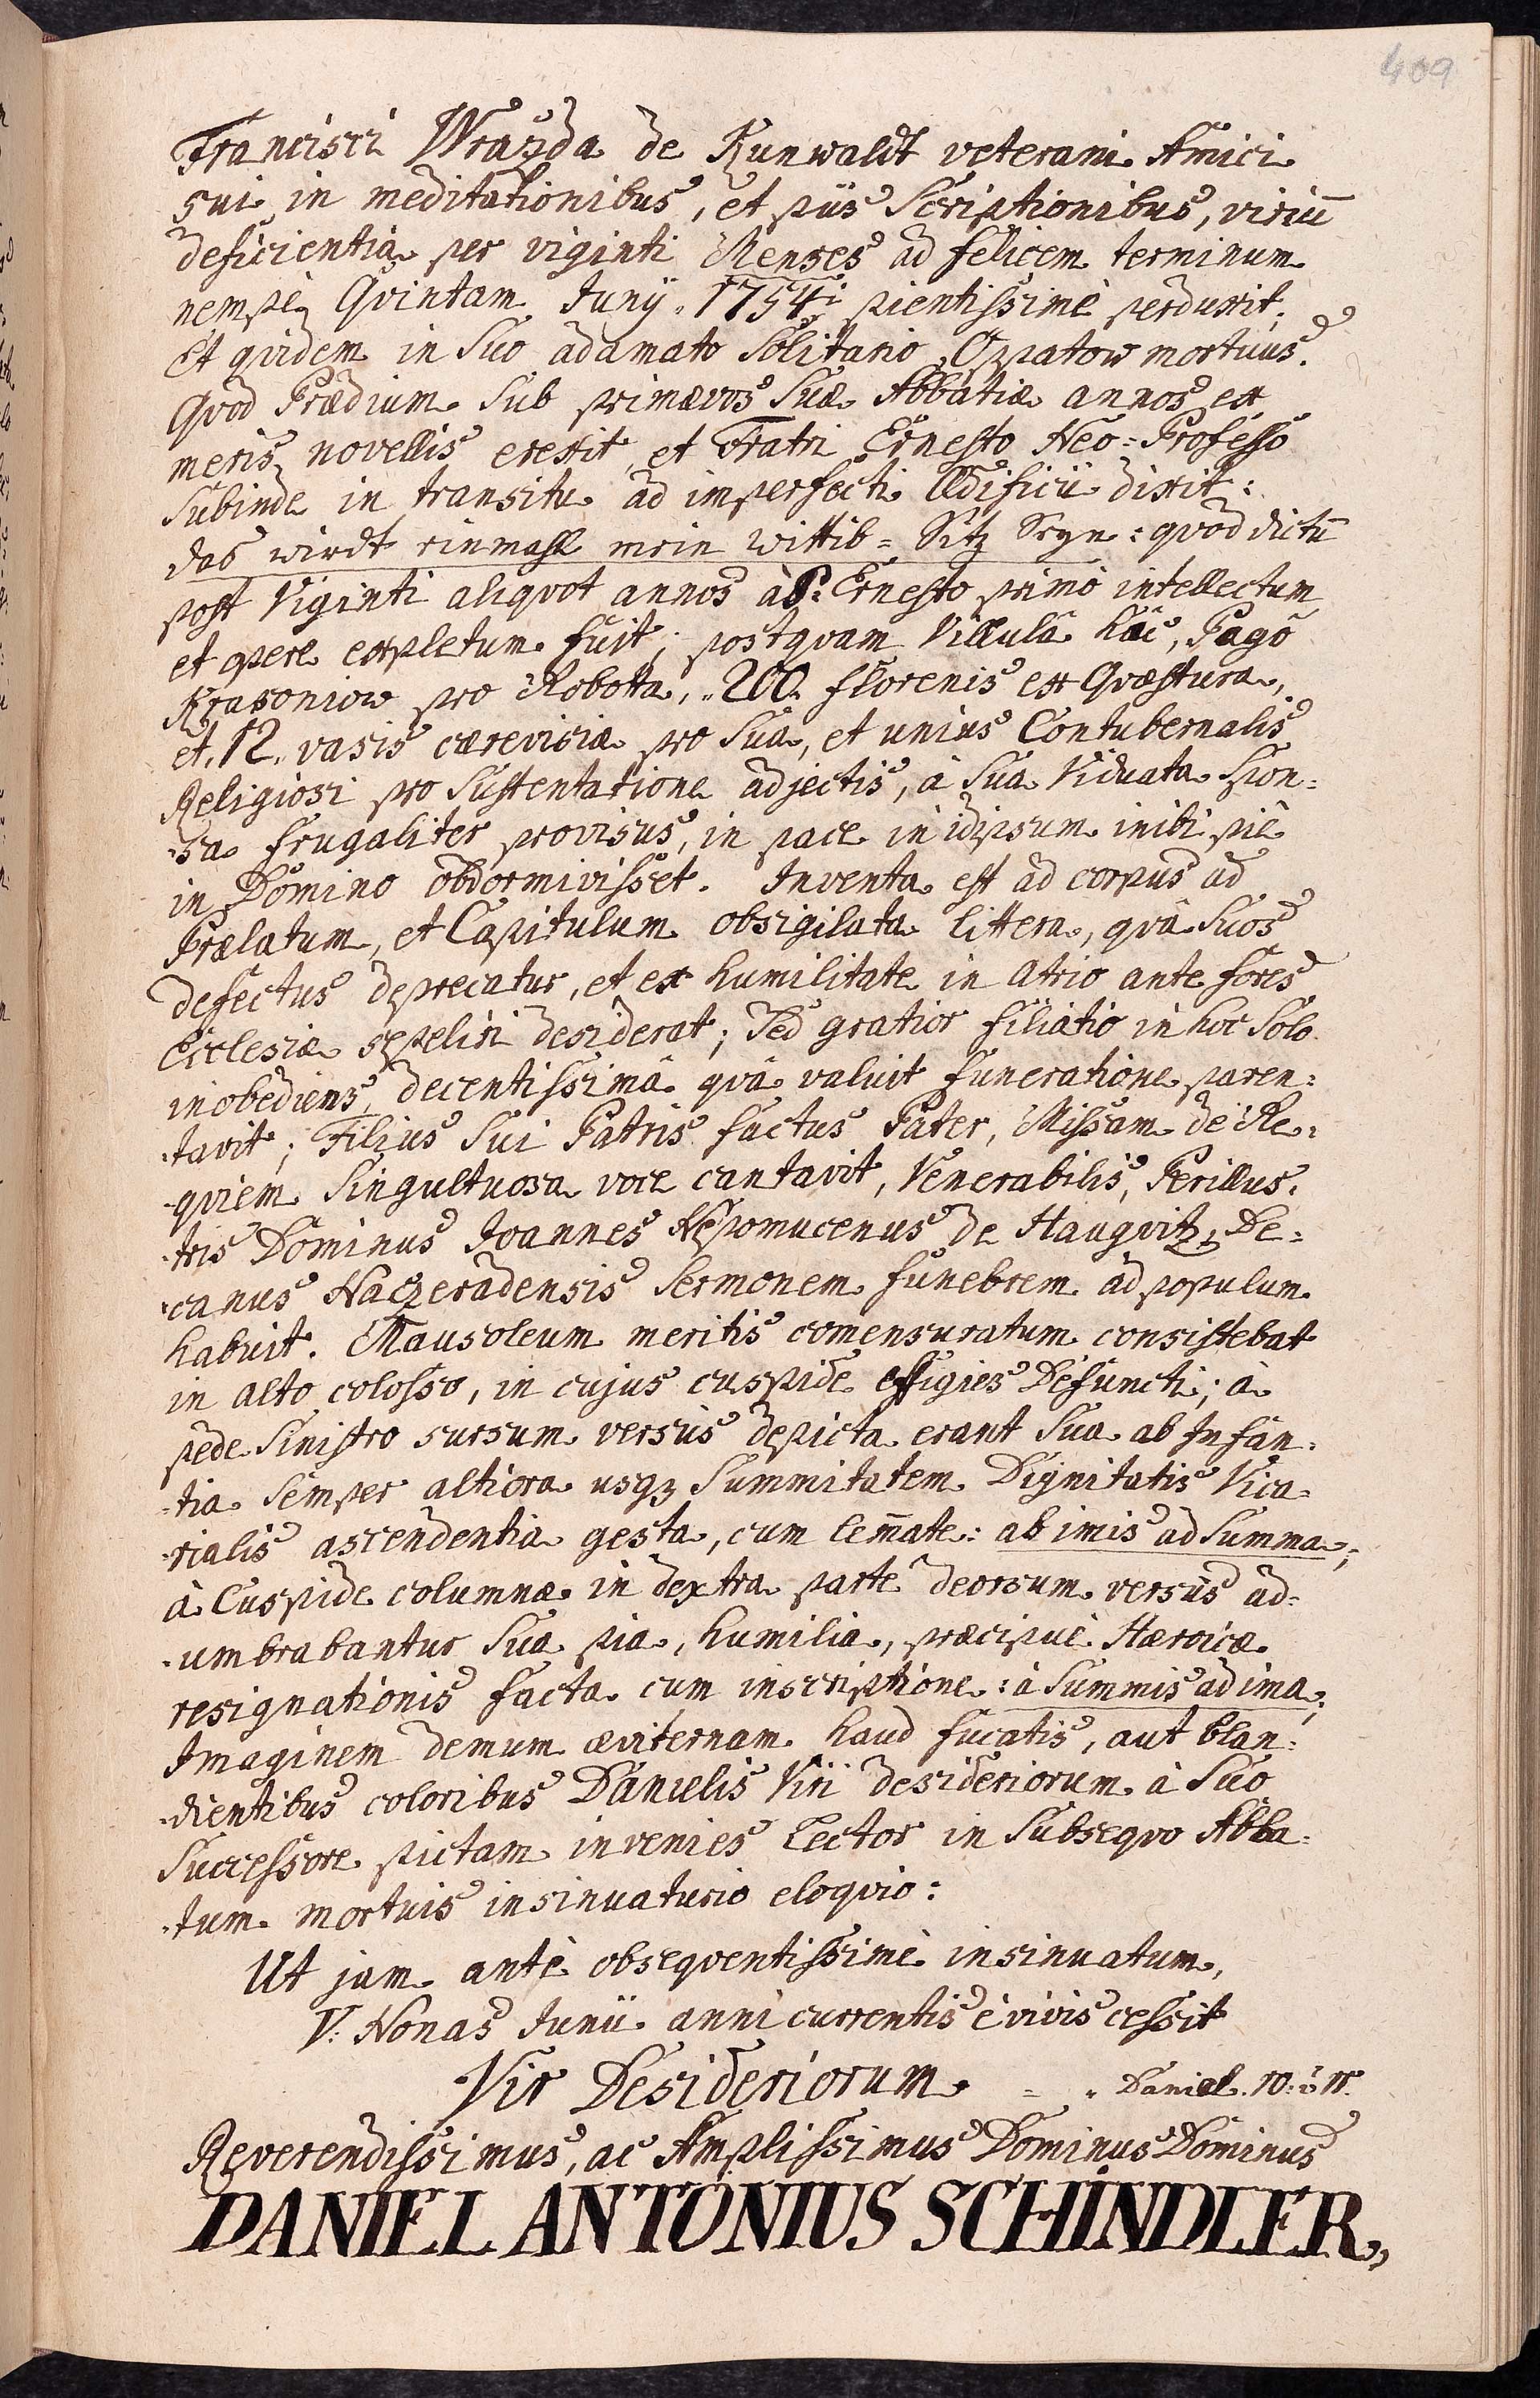 409
Francisci Wrazda de Kunwaldt veterani Amici
sui in meditationibus, et piis Scriptionibus, viriū
deficientia per viginti Menses ad felicem terminum
nempè Qvintam Junÿ 1754i pientissimè perduxit,
et qvidem in Suo adamato Solitario Oppatow mortuus.
Qvod Prædium Sub primævos Suæ Abbatiæ annos ex
meris novellis erexit, et Fratri Ernesto Neo=Professo
Subinde in transitu ad imperfecti Ædificii dixit:
das wirdt einmahl mein Wittib=Sitz Seyn: qvod dictū
post Viginti aliqvot annos à P: Ernesto primò intellectum,
et opere expletum fuit; postqvam Villulâ hâc, Pagô
Krasoniow pro Robotta, 200. florenis ex Qvæstura,
et 12. vasis cærevisiæ pro Sua, et unius Contubernalis
Religiosi pro Sustentatione adjectis, à Sua Viduata Spon=
sa frugaliter provisus, in pace in idipsum inibi piè
in Domino obdormivisset. Inventa est ad corpus ad
Prælatum, et Capitulum obsigilata littera, qvâ Suos
defectus deprecatur, et ex humilitate in atrio ante fores
Ecclesiæ sepeliri desiderat; Sed gratior filiatio in hoc Solo
inobediens, decentissimâ qvâ valuit funeratione paren=
tavit; Filius Sui Patris factus Pater, Missam de Re=
qviem Singultuosa voce cantavit, Venerabilis, Perillus=
tris Dominus Joannes Nepomucenus de Haugvitz, De=
canus Naczeradensis Sermonem funebrem ad populum
habuit. Mausoleum meritis comensuratum consistebat
in alto colosso, in cujus cuspide effigies Defuncti; à
pede Sinistro sursum versùs depicta erant Sua ab Infan=
tia Semper altiora usqz Summitatem Dignitatis Vica=
rialis ascendentia gesta, cum lem̄ate: ab imis ad Summa;
à Cuspide columnæ in dextra parte deorsum versùs ad=
umbrabantur Sua pia, humilia, præcipuè Hæroicæ
resignationis facta cum inscriptione: à Summis ad ima;
Imaginem demum æviternam haud fucatis, aut blan=
dientibus coloribus Danielis Viri desideriorum à Suo
Successore pictam invenies Lector in Subseqvo Abba=
tum mortuis insinuaturio eloqvio:
Ut jam antè obseqventissimè insinuatum,
V: Nonas Junii anni currentis è vivis cessit
Vir Desideriorum = " Daniel. 10. v: 11.
Reverendissimus, ac Amplissimus Dominus Dominus
DANIEL ANTONIUS SCHINDLER,